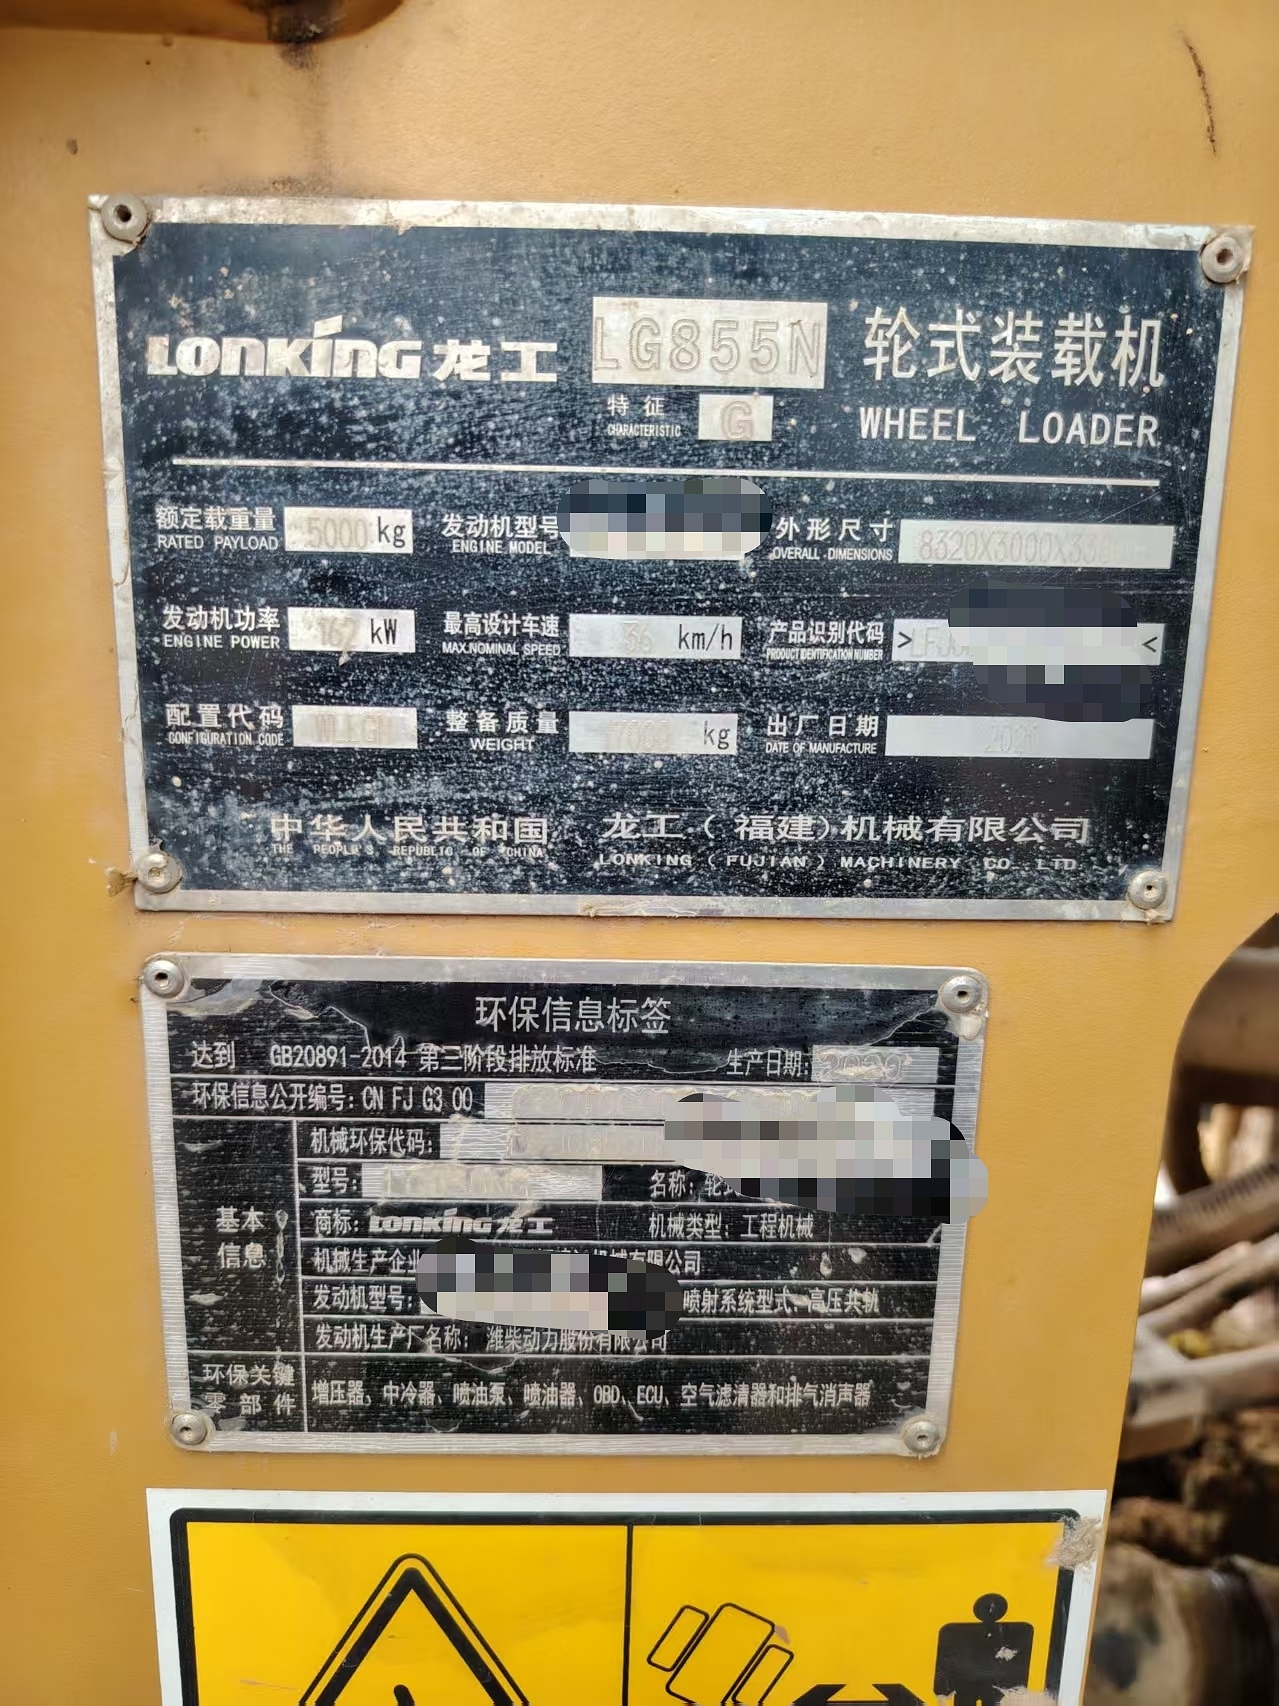 LONKING 龙工 LG855N 轮式装载机
特征 G
CHARACTERISTIC
WHEEL LOADER
额定载重量 5000 kg 发动机型号 外形尺寸 8320X3000X33
RATED PAYLOAD ENGINE MODEL OVERALL DIMENSIONS
发动机功率 162 kW 最高设计车速 36 km/h 产品识别代码 > <
ENGINE POWER MAX.NOMINAL SPEED PRODUCT IDENTIFICATION NUMBER
配置代码 整备质量 kg 出厂日期
CONFIGURATION CODE WEIGHT DATE OF MANUFACTURE
中华人民共和国 龙工(福建)机械有限公司
THE PEOPLE'S REPUBLIC OF CHINA LONKING (FUJIAN) MACHINERY CO. LTD.
环保信息标签
达到 GB20891-2014 第三阶段排放标准 生产日期:
环保信息公开编号: CN FJ G3 00
机械环保代码:
型号: 名称: 轮式
基本信息
商标: LONKING 龙工 机械类型: 工程机械
机械生产企业 机械有限公司
发动机型号: 喷射系统型式: 高压共轨
发动机生产厂名称: 潍柴动力股份有限公司
环保关键零部件
增压器、中冷器、喷油泵、喷油器、OBD、ECU、空气滤清器和排气消声器